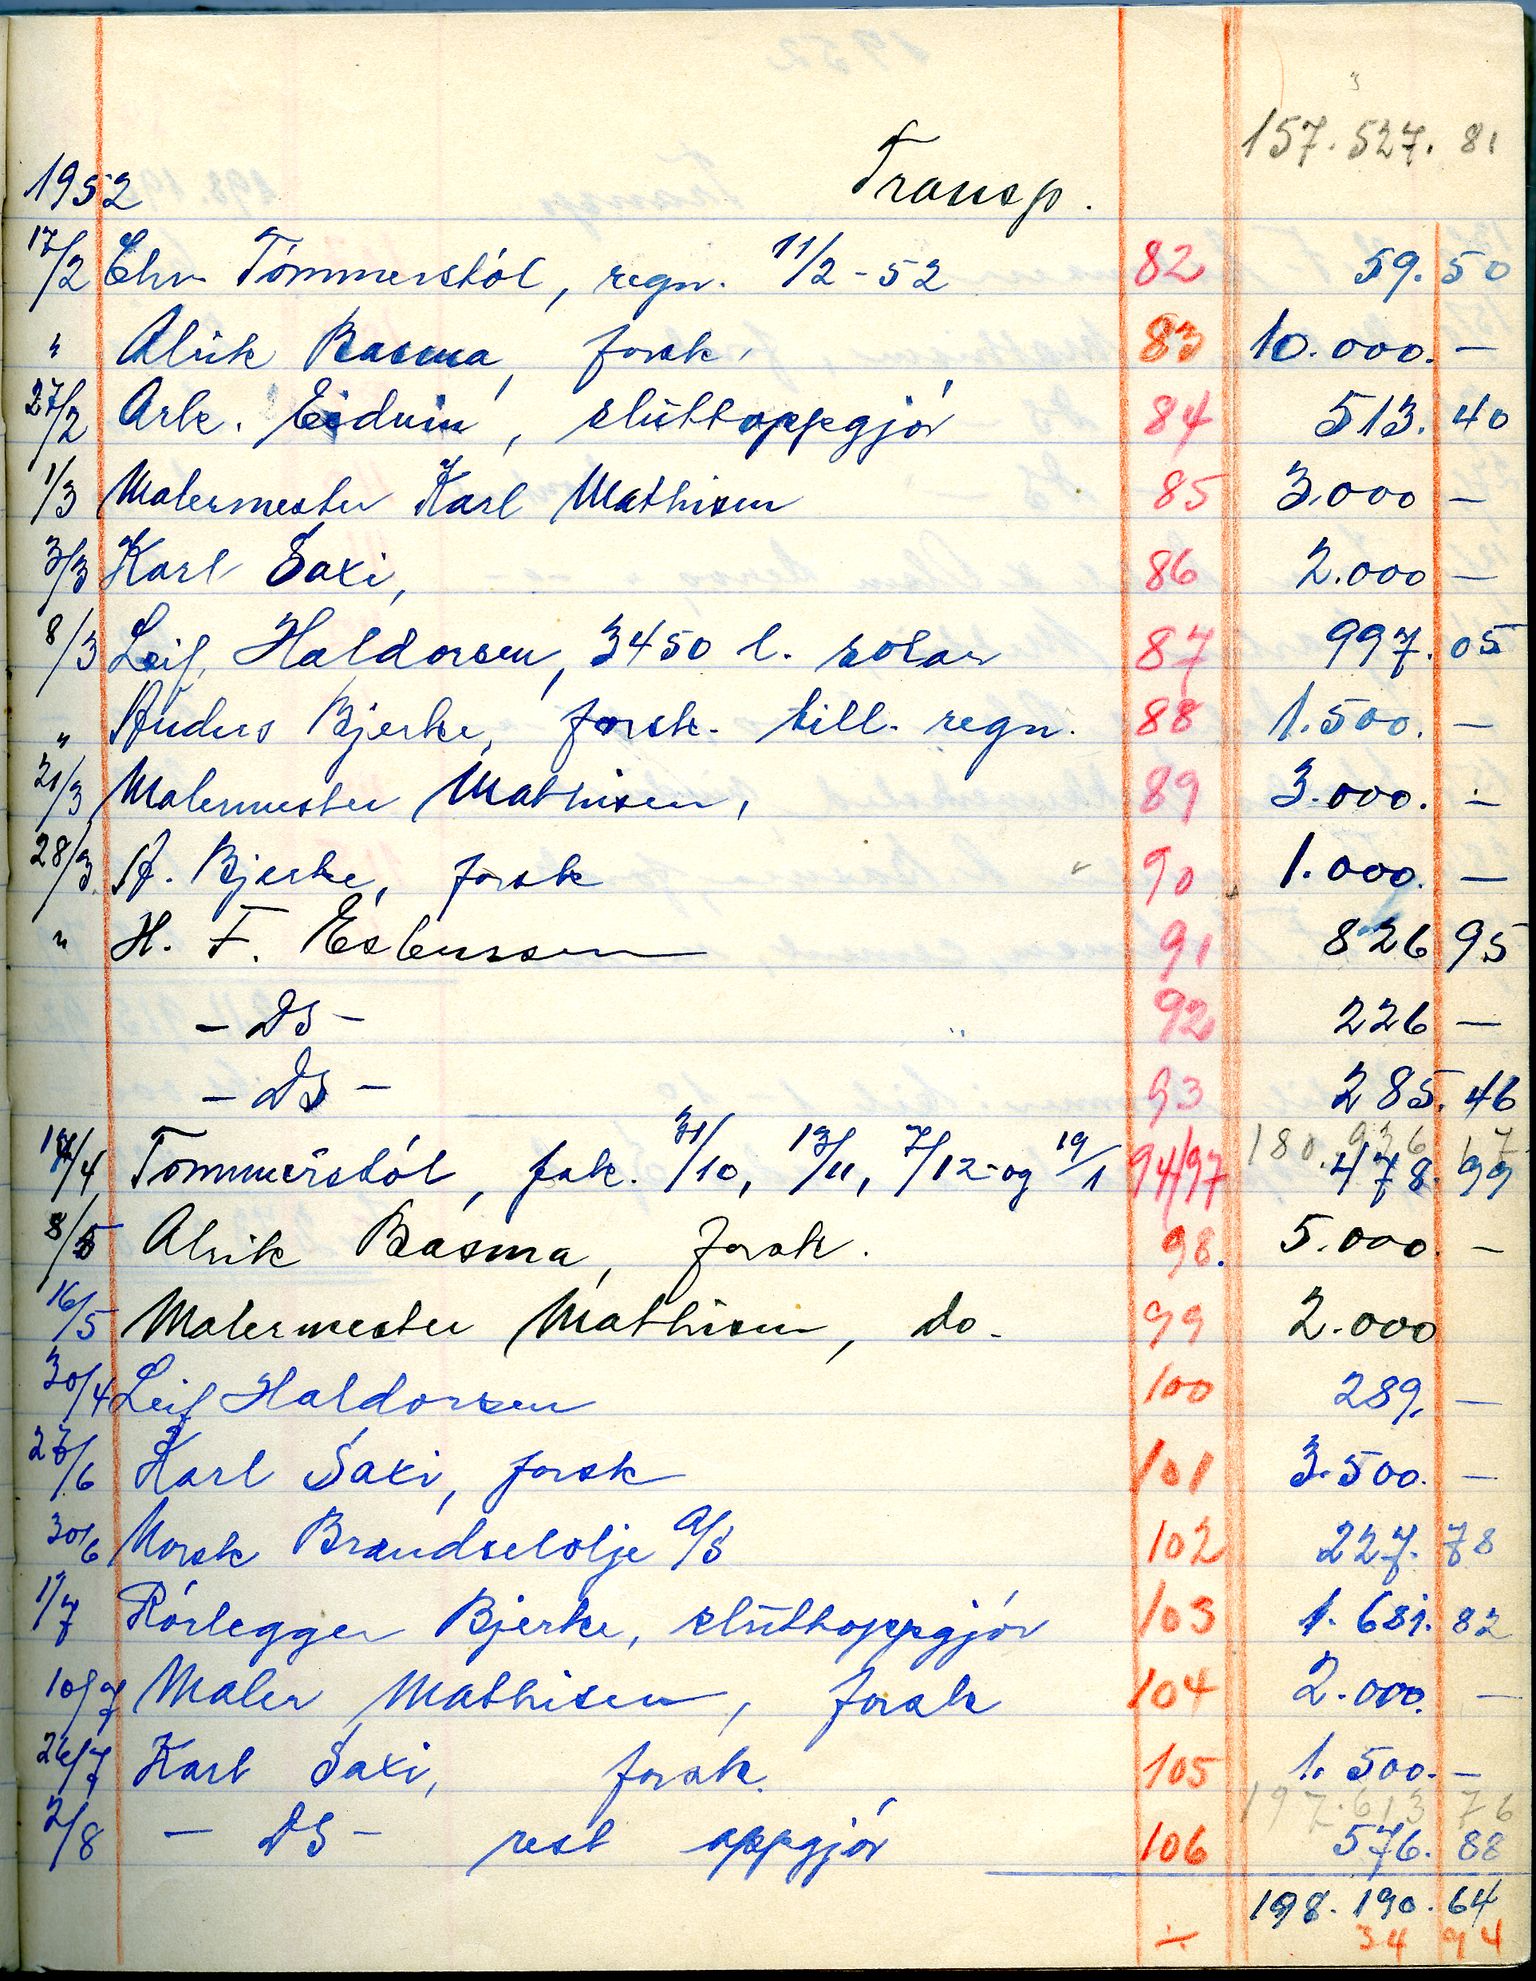 157.527.81
1952 Transp.
17/2 Chr. Tømmerstøl, regn. 11/2-52 82 59.50
" Alrik Basma, forsk. 83 10.000.—
27/2 Ark. Eidvin, sluttoppgjør 84 513.40
1/3 Malermester Karl Mathisen 85 3.000 —
3/3 Karl Saxi, 86 2.000 —
8/3 Leif Haldorsen, 3450 l. solar 87 997.05
" Anders Bjerke, forsk. till. regn. 88 1.500.—
21/3 Malermester Mathisen, 89 3.000.—
28/3 A. Bjerke, forsk 90 1.000.—
" H. F. Esbensen 91 826 95
— DS — 92 226 —
— DS — 93 285.46
180.936 17
17/4 Tømmerstøl, fak. 31/10, 13/11, 7/12 og 19/1 94/97 478.99
8/5 Alrik Basma, forsk. 98. 5.000.—
16/5 Malermester Mathisen, do. 99 2.000
30/4 Leif Haldorsen 100 289.—
27/6 Karl Saxi, forsk 101 3.500.—
30/6 Norsk Brændselolje A/S 102 227.78
1/7 Rørlegger Bjerke, sluttoppgjør 103 1.681.82
10/7 Maler Mathisen, forsk 104 2.000.—
26/7 Karl Saxi, forsk. 105 1.500.—
197.613 76
2/8 — DS — rest oppgjør 106 576.88
198.190.64
÷ 34 94